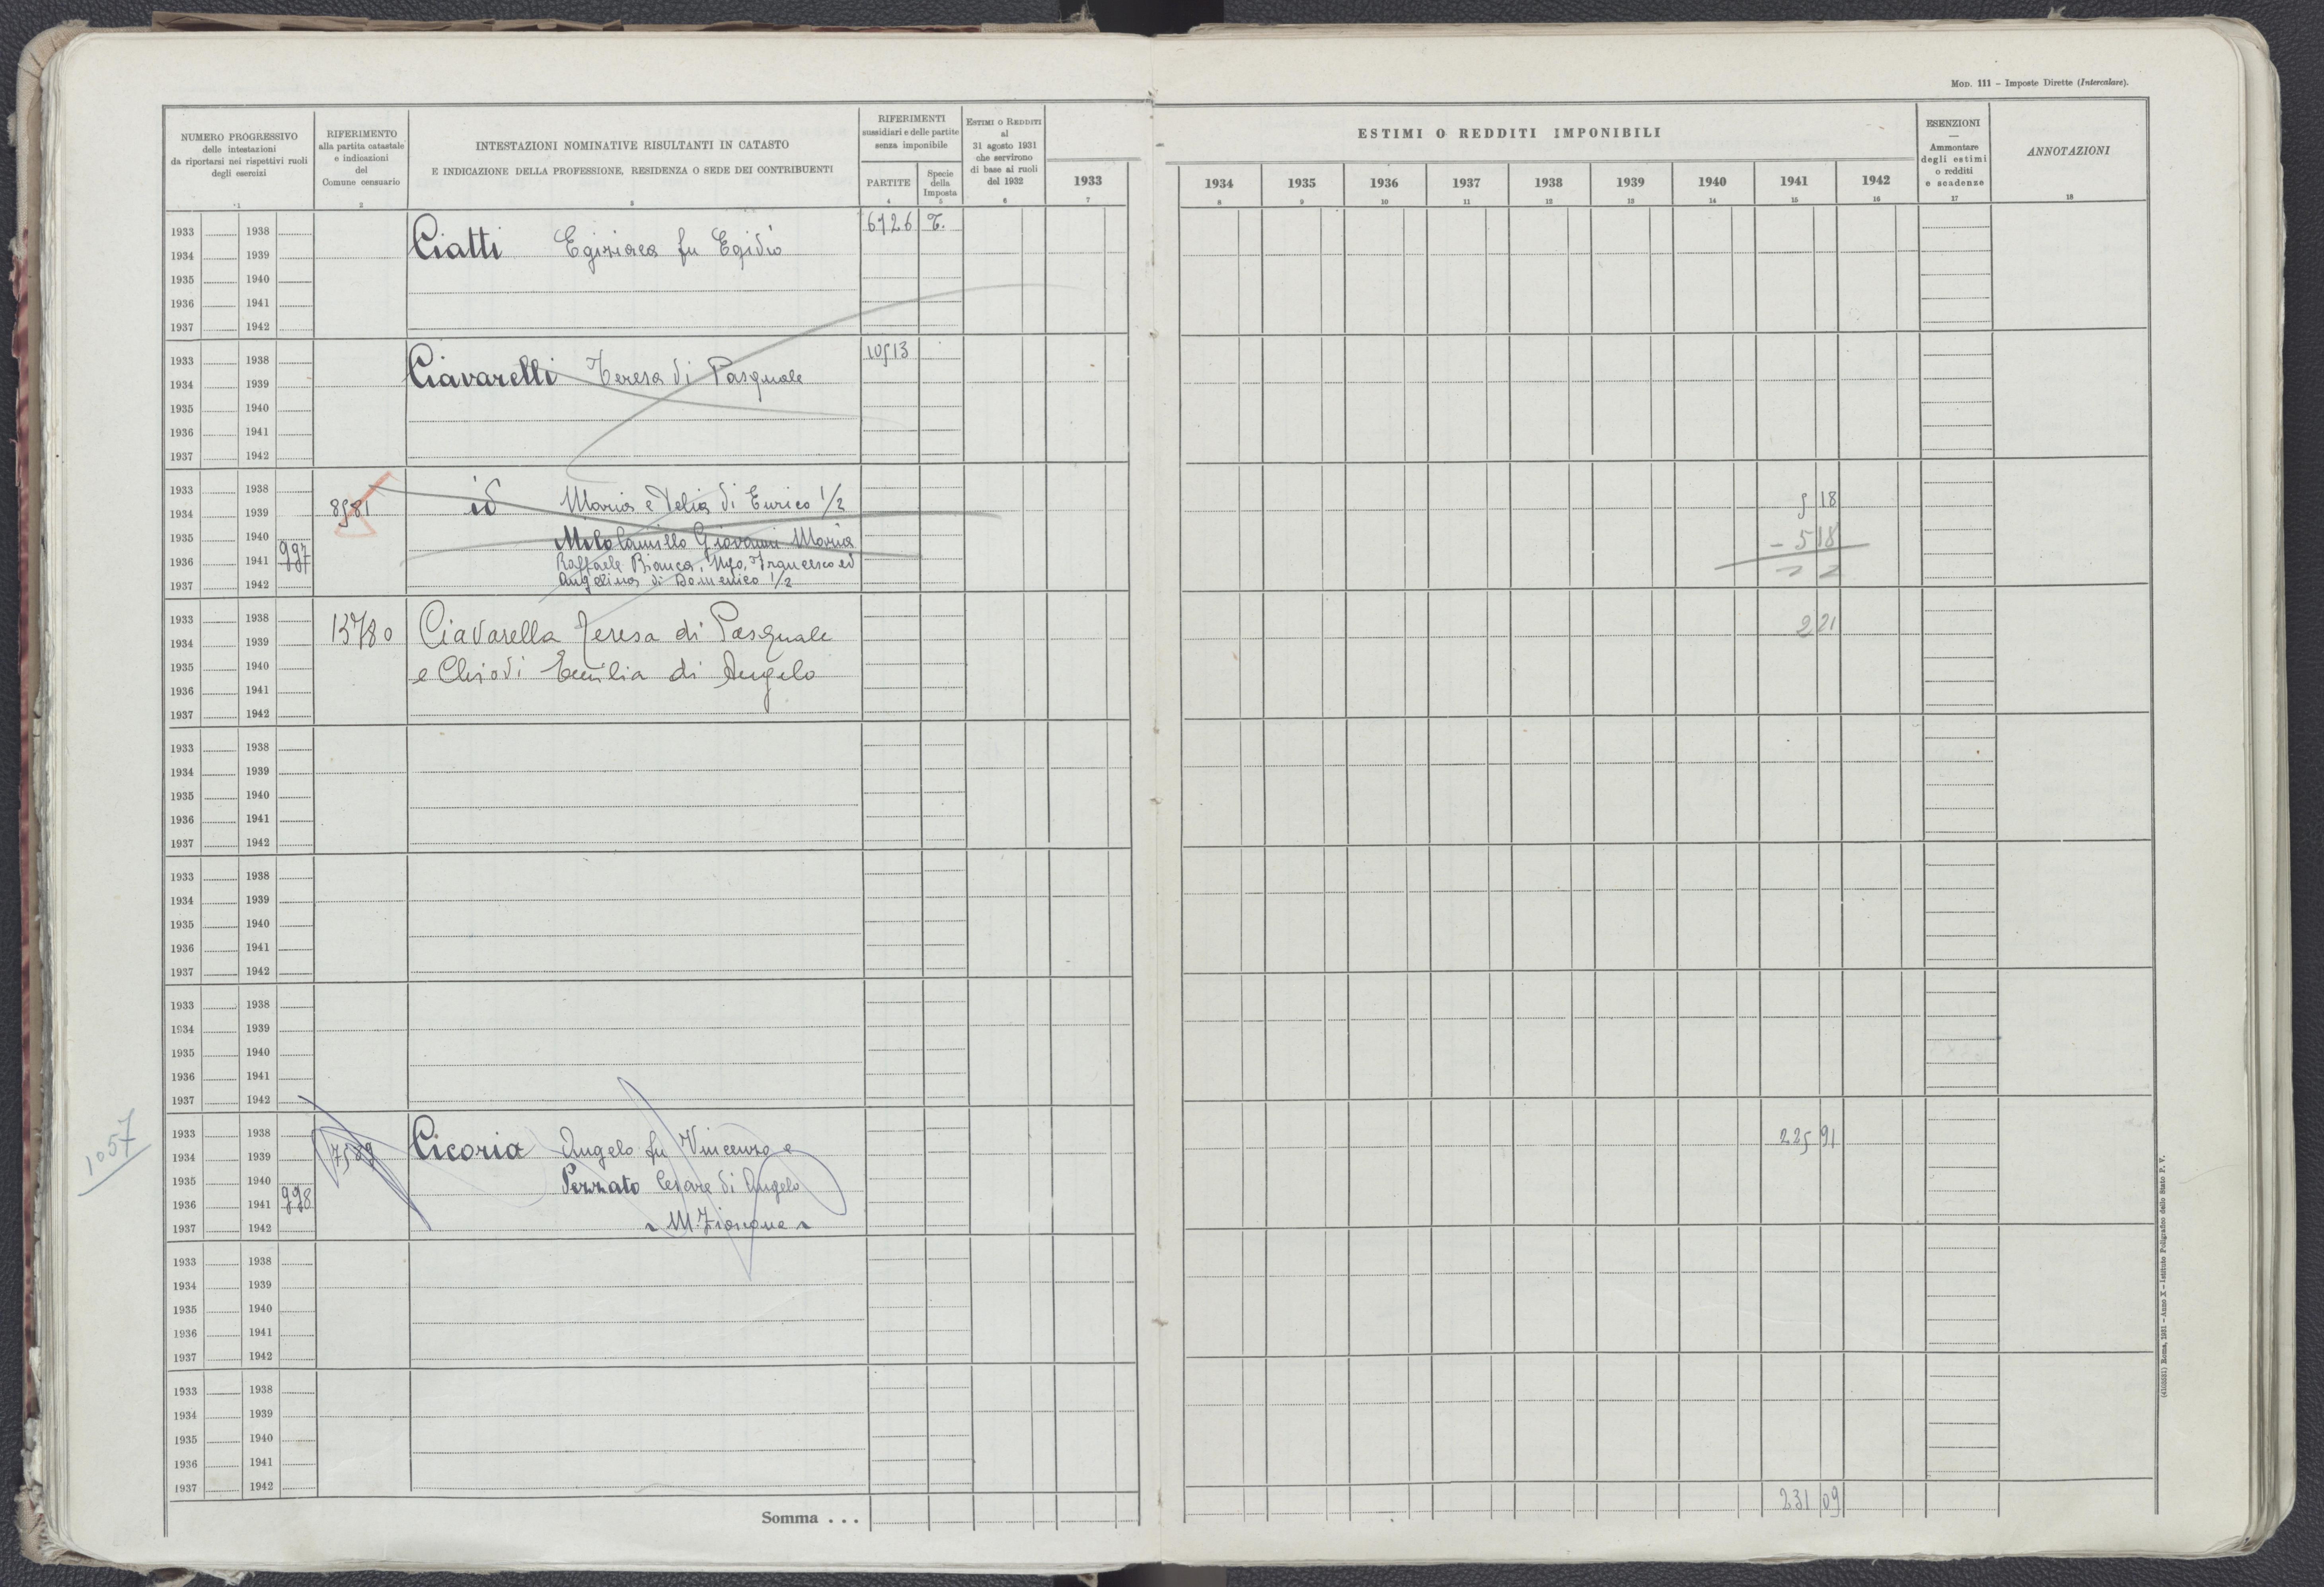 Mod. 111 - Imposte Dirette (Intercalare).
NUMERO PROGRESSIVO
delle intestazioni
da riportarsi nei rispettivi ruoli
degli esercizi
1
RIFERIMENTO
alla partita catastale
e indicazioni
del
Comune censuario
2
INTESTAZIONI NOMINATIVE RISULTANTI IN CATASTO
E INDICAZIONE DELLA PROFESSIONE, RESIDENZA O SEDE DEI CONTRIBUENTI
3
RIFERIMENTI
sussidiari e delle partite
senza imponibile
PARTITE
4
Specie
della
Imposta
5
ESTIMI O REDDITI
al
31 agosto 1931
che servirono
di base ai ruoli
del 1932
6
1933
7
ESTIMI O REDDITI IMPONIBILI
1934 1935 1936 1937 1938 1939 1940 1941 1942
8 9 10 11 12 13 14 15 16
ESENZIONI
—
Ammontare
degli estimi
o redditi
e scadenze
17
ANNOTAZIONI
18
1933 1938 6726 T.
1934 1939 Ciatti Egiziaca fu Egidio
1935 1940
1936 1941
1937 1942
1933 1938 10513
1934 1939 Ciavarelli Teresa di Pasquale
1935 1940
1936 1941
1937 1942
1933 1938 id Maria e Delia di Enrico 1/2 5 18
1934 1939 8581
1935 1940 Giovanni Maria - 5 18
1936 1941 997 Raffaele Bianca, Ugo, Francesco ed
1937 1942 Angelina di Domenico 1/2
1933 1938 2 21
1934 1939 13780 Ciavarella Teresa di Pasquale
1935 1940 e Chiodi Emilia di Angelo
1936 1941
1937 1942
1933 1938
1934 1939
1935 1940
1936 1941
1937 1942
1933 1938
1934 1939
1935 1940
1936 1941
1937 1942
1933 1938
1934 1939
1935 1940
1936 1941
1937 1942
1057
1933 1938 225 91
1934 1939 7589 Cicoria Angelo fu Vincenzo e
1935 1940 Pezzato Cesare di Angelo
1936 1941 998
1937 1942
1933 1938
1934 1939
1935 1940
1936 1941
1937 1942
1933 1938
1934 1939
1935 1940
1936 1941
1937 1942
Somma . . . 231 09
(4103531) Roma, 1931 - Anno X - Istituto Poligrafico dello Stato P. V.